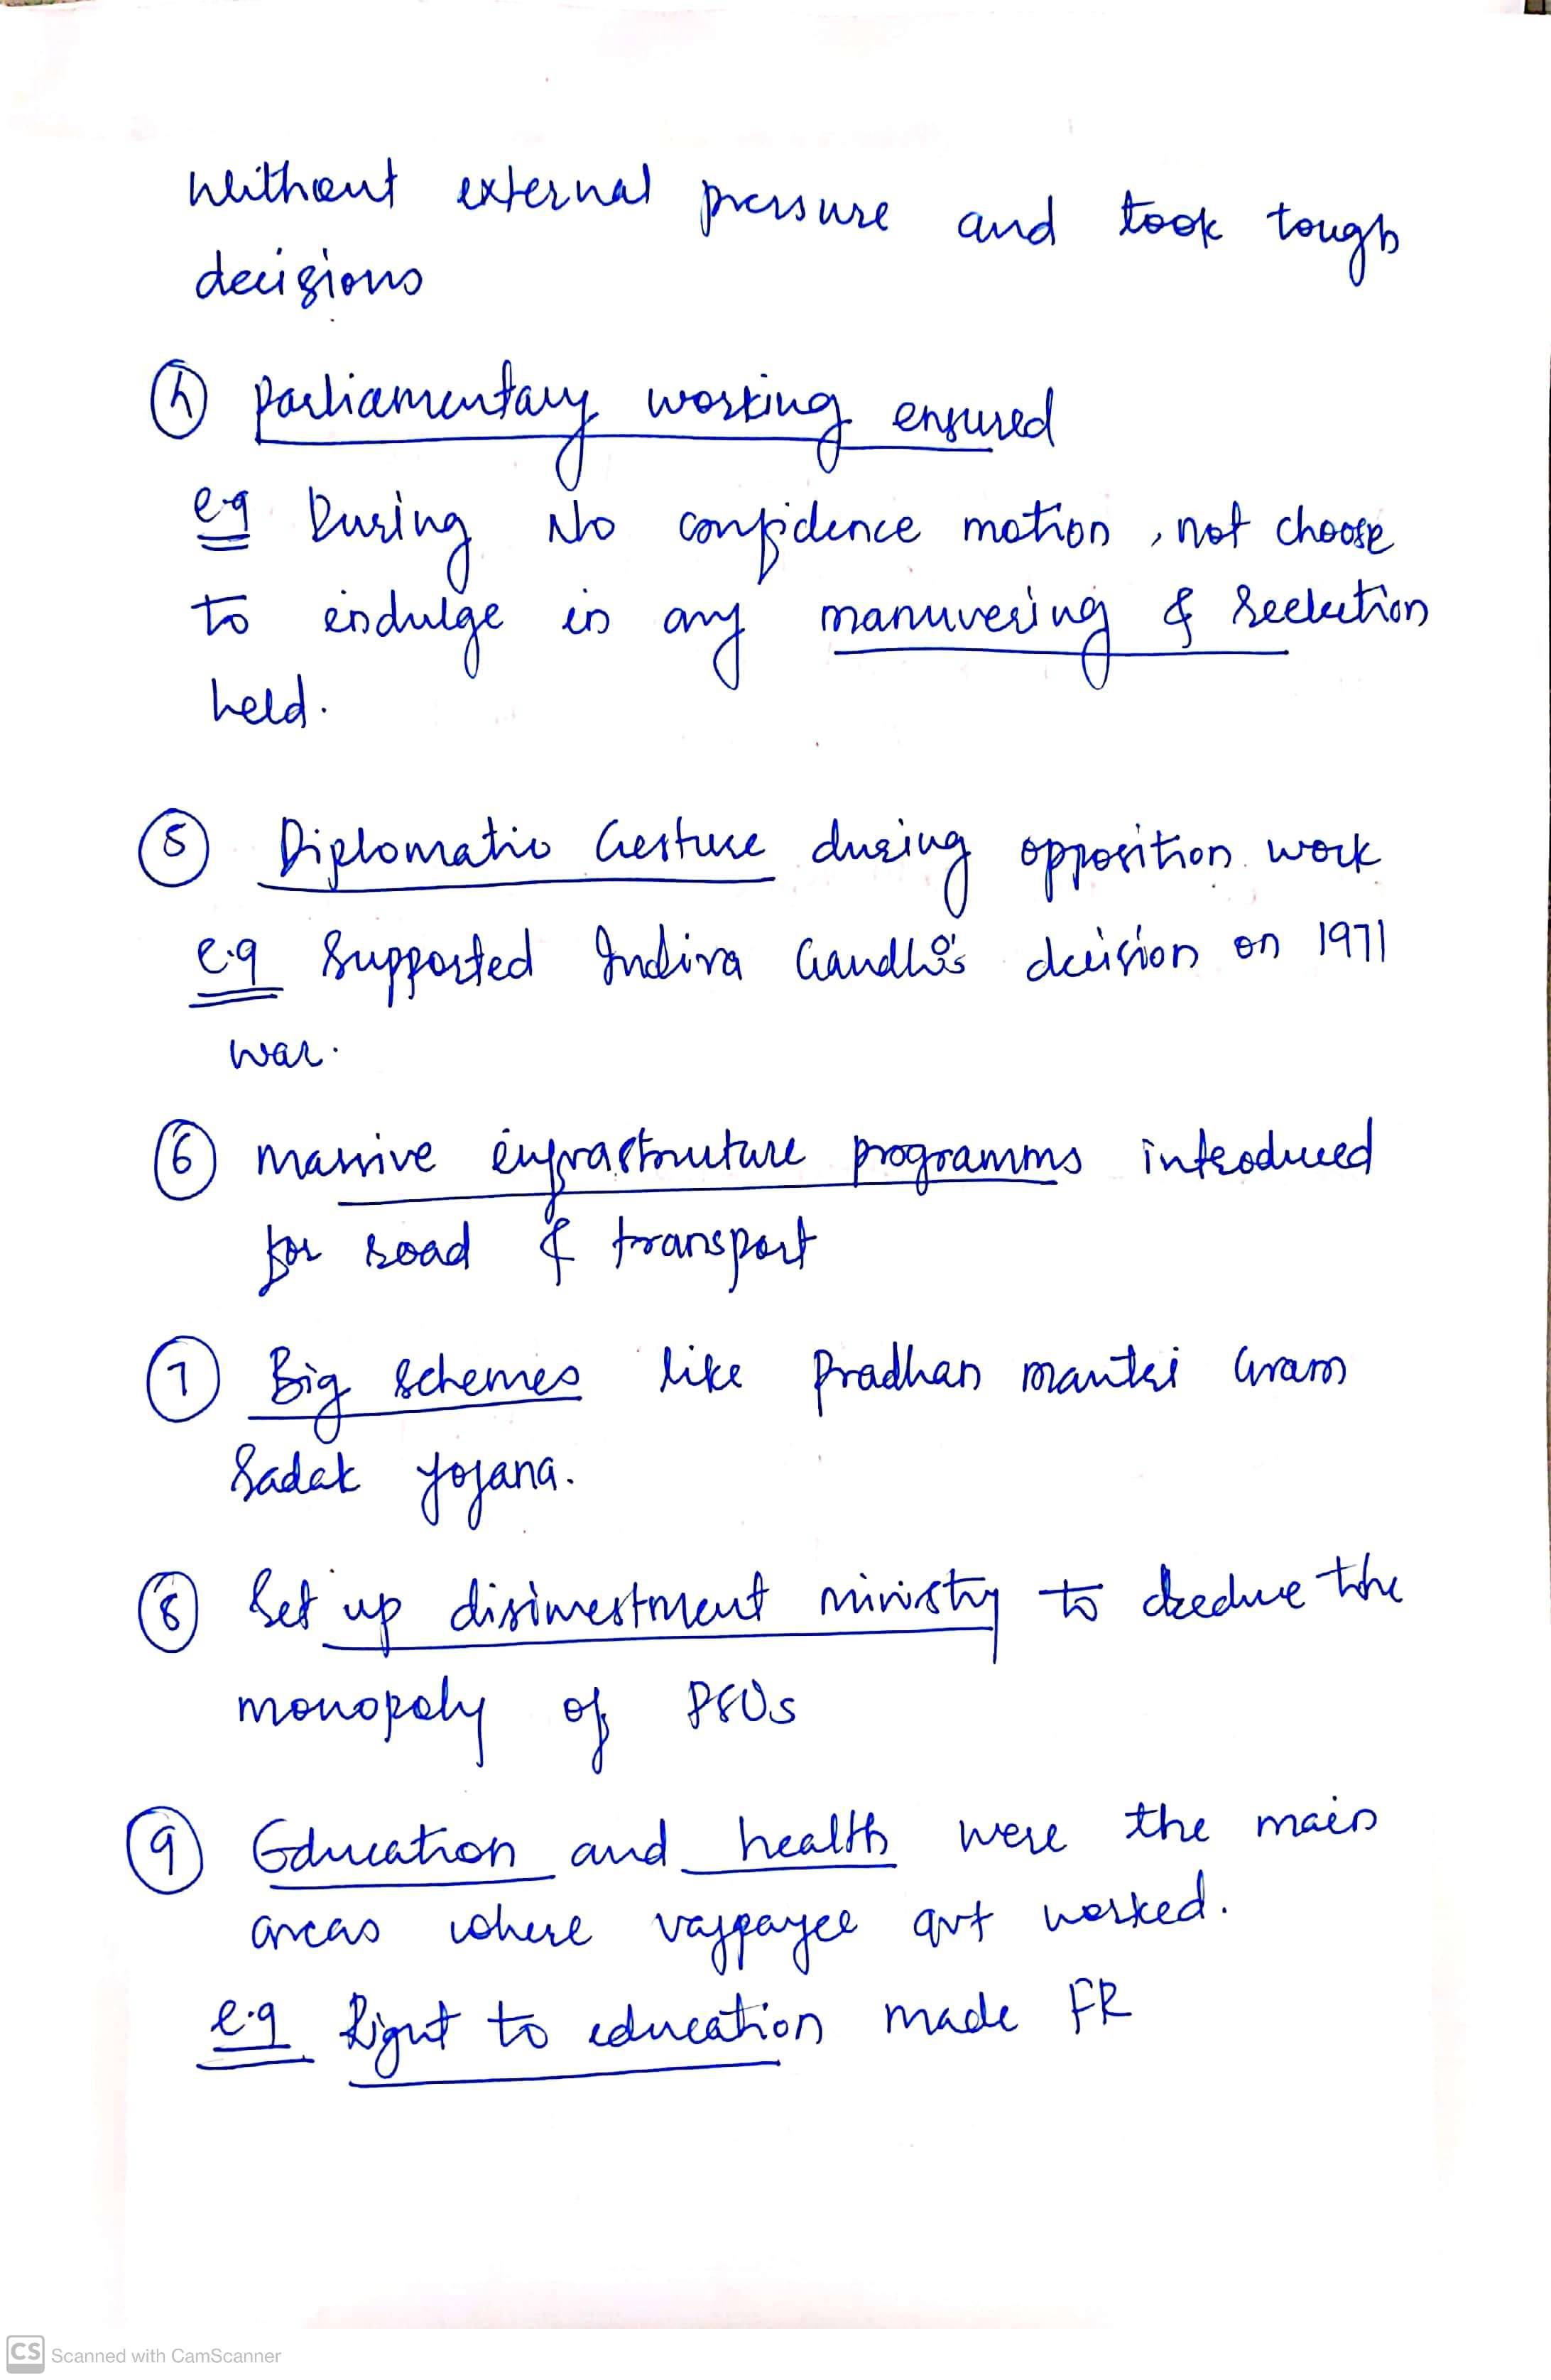 without external pressure and took tough
decisions
4 Parliamentary working ensured
e.g During No confidence motion, not choose
to indulge in any manuvering & reelection
held.
5 Diplomatic Gesture during opposition work
e.g Supported Indira Gandhi's decision on 1971
war.
6 massive infrastructure programms introduced
for road & transport
7 Big schemes like Pradhan mantri Gram
Sadak yojana.
8 Set up disinvestment ministry to reduce the
monopoly of PSUs
9 Education and health were the main
areas where vajpayee gvt worked.
e.g Right to education made FR
CS Scanned with CamScanner